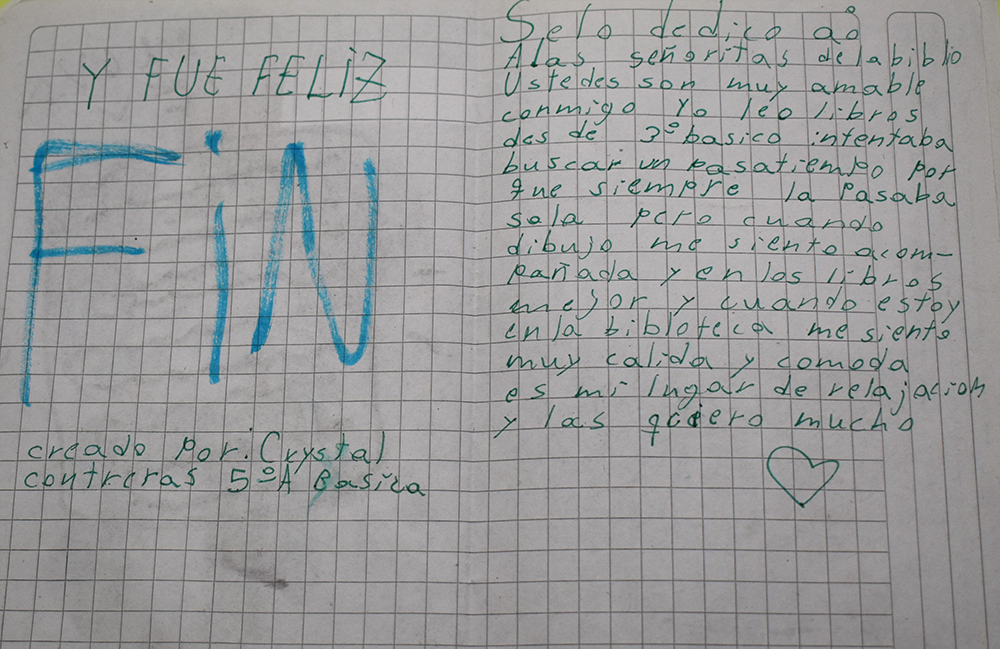 Y FUE FELiZ
FiN
creado por: Crystal
contreras 5ºA Basica
Selo dedico a:
Alas señoritas de la biblio
Ustedes son muy amable
conmigo Yo leo libros
des de 3º basico intentaba
buscar un pasatiempo por
que siempre la Pasaba
sola pero cuando
dibujo me siento acom-
pañada y en los libros
mejor y cuando estoy
en la bibloteca me siento
muy calida y comoda
es mi lugar de relajacion
y las quiero mucho